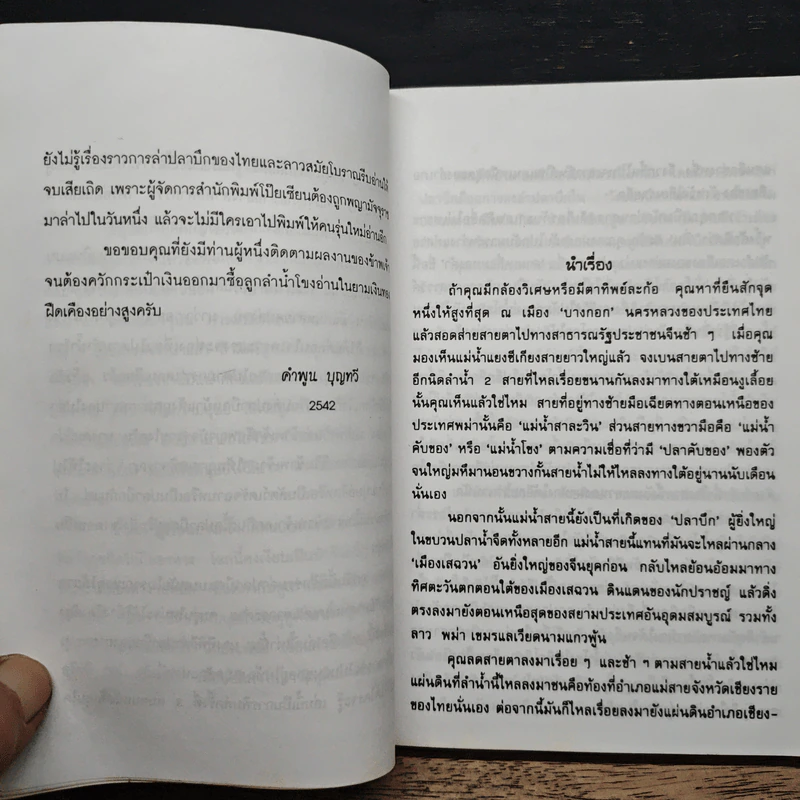 ยังไม่รู้เรื่องราวการล่าปลาบึกของไทยและลาวสมัยโบราณรีบอ่านให้
จบเสียเถิด เพราะผู้จัดการสำนักพิมพ์โป๊ยเซียนต้องถูกพญามัจจุราช
มาล่าไปในวันหนึ่ง แล้วจะไม่มีใครเอาไปพิมพ์ให้คนรุ่นใหม่อ่านอีก
ขอขอบคุณที่ยังมีท่านผู้หนึ่งติดตามผลงานของข้าพเจ้า
จนต้องควักกระเป๋าเงินออกมาซื้อลูกลำน้ำโขงอ่านในยามเงินทอง
ฝืดเคืองอย่างสูงครับ
คำพูน บุญทวี
2542
นำเรื่อง
ถ้าคุณมีกล้องวิเศษหรือมีตาทิพย์ละก้อ คุณหาที่ยืนสักจุด
หนึ่งให้สูงที่สุด ณ เมือง ‘บางกอก’ นครหลวงของประเทศไทย
แล้วสอดส่ายสายตาไปทางสาธารณรัฐประชาชนจีนช้า ๆ เมื่อคุณ
มองเห็นแม่น้ำแยงซีเกียงสายยาวใหญ่แล้ว จงเบนสายตาไปทางซ้าย
อีกนิดลำน้ำ 2 สายที่ไหลเรื่อยขนานกันลงมาทางใต้เหมือนงูเลื้อย
นั้นคุณเห็นแล้วใช่ไหม สายที่อยู่ทางซ้ายมือเฉียดทางตอนเหนือของ
ประเทศพม่านั้นคือ ‘แม่น้ำสาละวิน’ ส่วนสายทางขวามือคือ ‘แม่น้ำ
คับของ’ หรือ ‘แม่น้ำโขง’ ตามความเชื่อที่ว่ามี ‘ปลาคับของ’ พองตัว
จนใหญ่มหึมานอนขวางกั้นสายน้ำไม่ให้ไหลลงทางใต้อยู่นานนับเดือน
นั่นเอง
นอกจากนั้นแม่น้ำสายนี้ยังเป็นที่เกิดของ ‘ปลาบึก’ ผู้ยิ่งใหญ่
ในขบวนปลาน้ำจืดทั้งหลายอีก แม่น้ำสายนี้แทนที่มันจะไหลผ่านกลาง
‘เมืองเสฉวน’ อันยิ่งใหญ่ของจีนยุคก่อน กลับไหลย้อนอ้อมมาทาง
ทิศตะวันตกตอนใต้ของเมืองเสฉวน ดินแดนของนักปราชญ์ แล้วดิ่ง
ตรงลงมายังตอนเหนือสุดของสยามประเทศอันอุดมสมบูรณ์ รวมทั้ง
ลาว พม่า เขมรแลเวียดนามแกวพู้น
คุณลดสายตาลงมาเรื่อย ๆ และช้า ๆ ตามสายน้ำแล้วใช่ไหม
แผ่นดินที่ลำน้ำนี้ไหลลงมาชนคือท้องที่อำเภอแม่สายจังหวัดเชียงราย
ของไทยนั่นเอง ต่อจากนี้มันก็ไหลเรื่อยลงมายังแผ่นดินอำเภอเชียง-